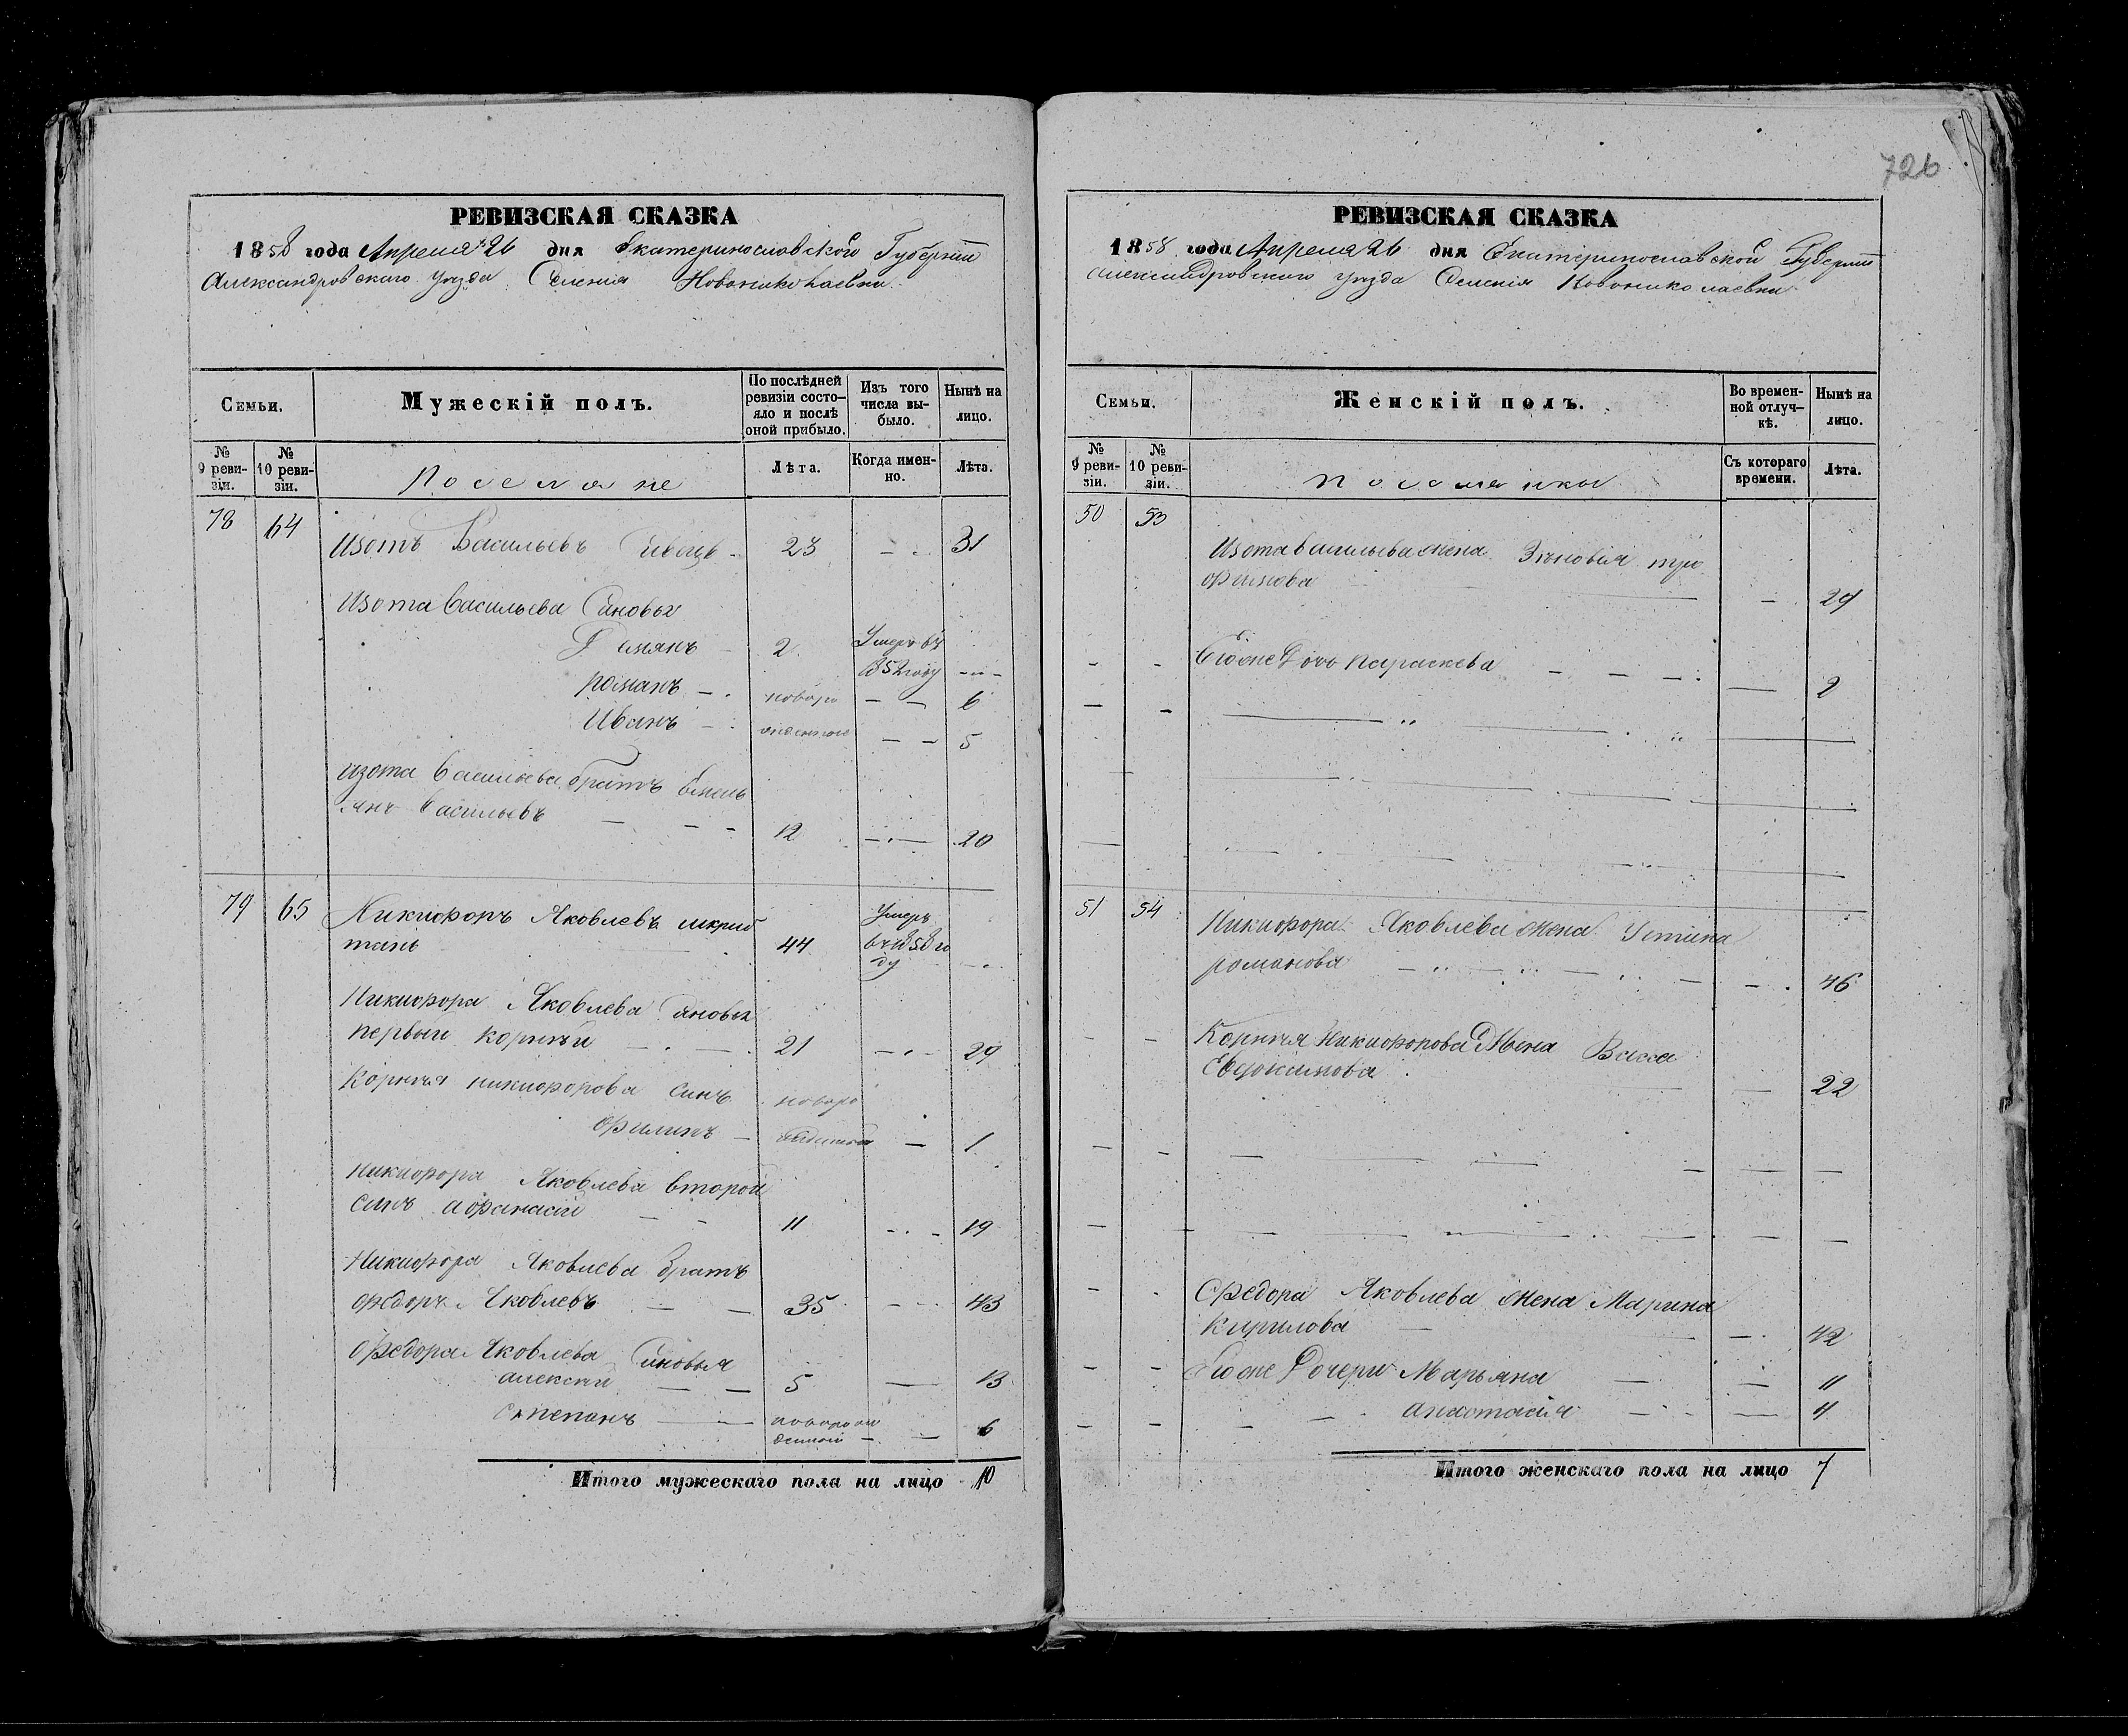 726
РЕВИЗСКАЯ СКАЗКА
1858 года Апреля 26 дня Екатеринославской Губернии
Александровскаго уезда Селения Новониколаевки
Семьи.
Мужескій полъ.
По послѣдней ревизіи состо-
яло и послѣ
оной прибыло.
Изъ того
числа вы-
было.
Нынѣ на
лицо.
№
9 реви-
зіи.
№
10 реви-
зіи.
Поселяне
Лѣта.
Когда имен-
но.
Лѣта.
78 64
Изотъ Васильевъ 23 31
Изота Васильева Сыновья
Демянъ 2 Умеръ въ
1852 году
Романъ - новоро - - 6
Иванъ - жденные - - 5
Изота Васильева братъ Емель
янъ Васильевъ - - - 12 - 20
79 65 Никифоръ Яковлевъ Умеръ
44 въ 1858 го
ду
Никифора Яковлева Сыновья
первый Корнѣй 21 - 29
Корнѣя Никифорова сынъ новоро
Филипъ - жденный - 1
Никифора Яковлева второй
сынъ Афанасій - - 11 - 19
Никифора Яковлева братъ
Федоръ Яковлевъ - - 35 - 43
Федора Яковлева Сыновья
Алексѣй - - 5 - 13
Степанъ - новорож
денный - - 6
Итого мужескаго пола на лицо 10
РЕВИЗСКАЯ СКАЗКА
1858 года Апреля 26 дня Екатеринославской Губернии
Александровскаго уезда Селенія Новониколаевки
Семьи.
Женскій полъ.
Во времен-
ной отлуч-
кѣ.
Нынѣ на
лицо.
№
9 реви-
зіи.
№
10 реви-
зіи.
Поселянки
Съ котораго
времени.
Лѣта.
50 53
Изота Васильева жена Зѣновія Тро
фимова - 29
- - Его же Дочь Параскева - - - 2
51 54 Никифора Яковлева жена Устина
Романова - - 46
- - Корнѣя Никифорова Жена Васса
Евдокимова - 22
- - Федора Яковлева жена Марина
Кирилова - - 42
- - Его же Дочери Марьяна - - 11
- - - - Анастасія - - 4
Итого женскаго пола на лицо 7